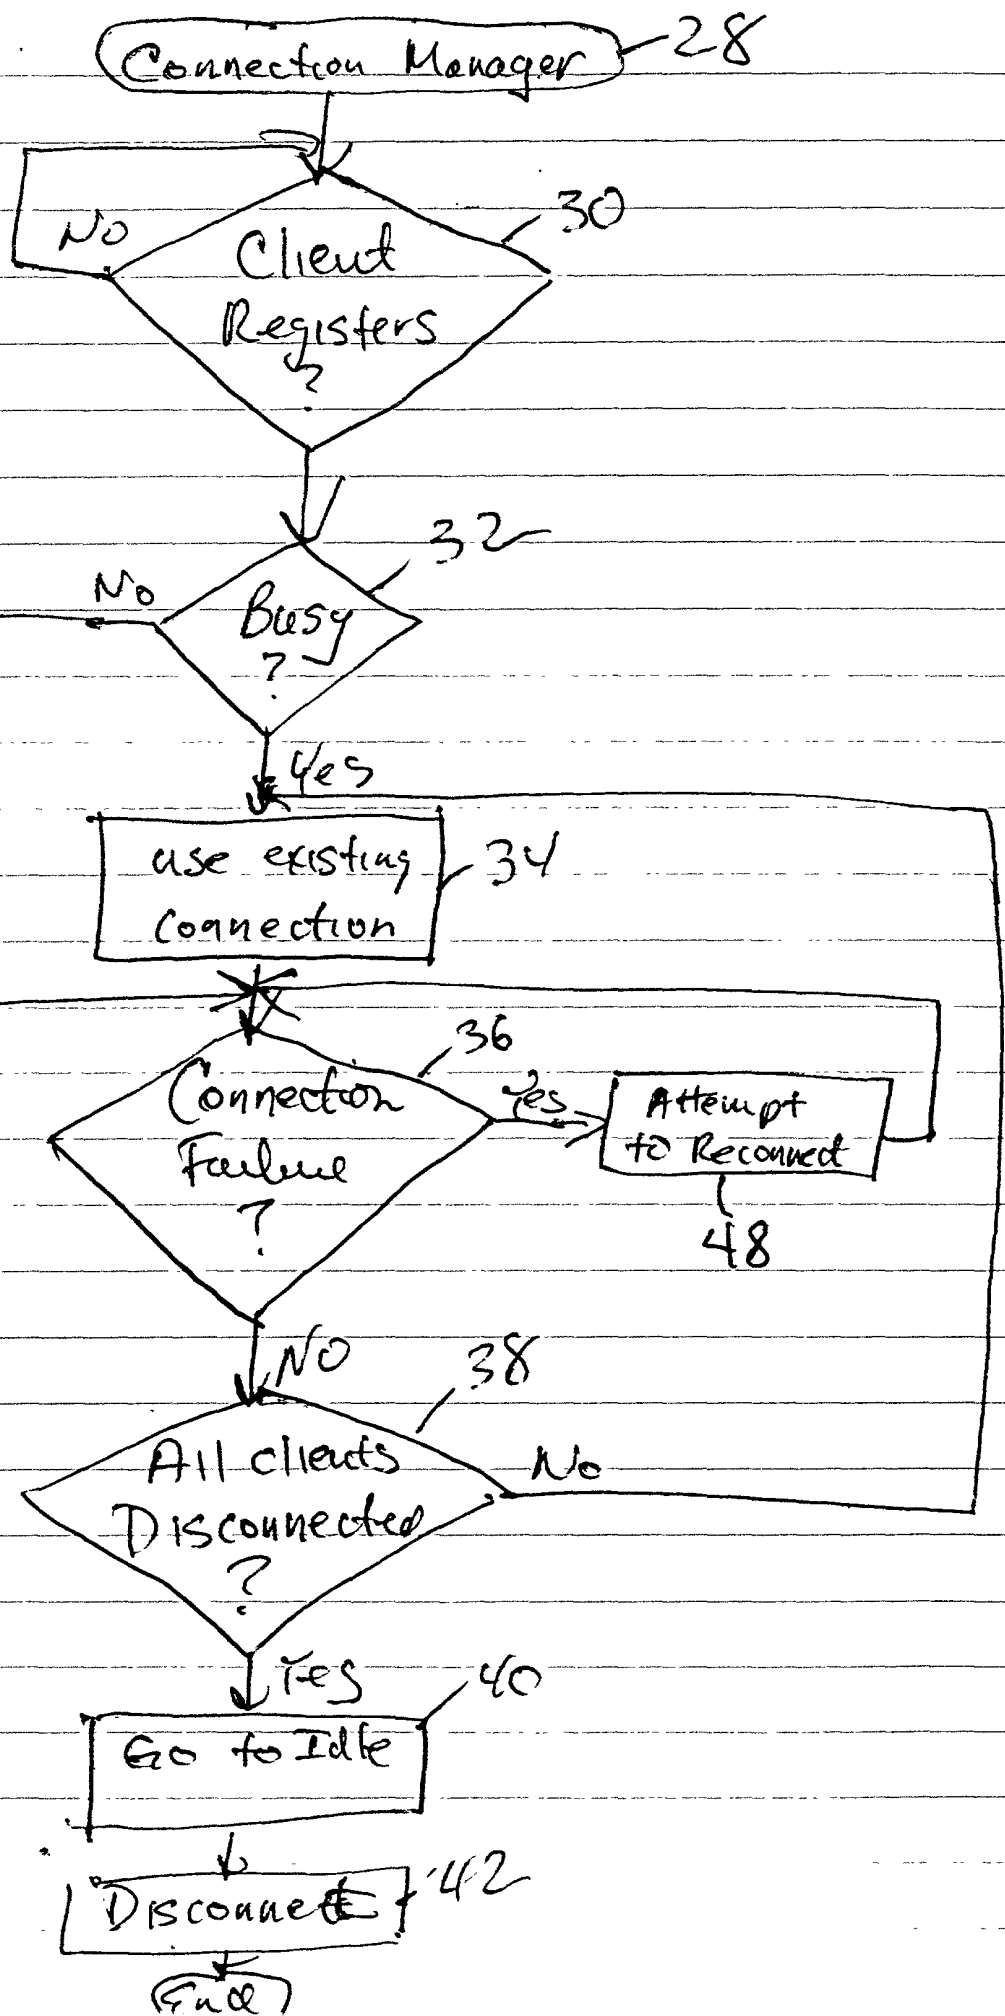 Connection Manager 28
No
30
Client
Registers
?
32
No
Busy
?
Yes
use existing
connection
34
36
Connection
Failure
?
Yes
Attempt
to Reconnect
48
NO
38
All clients
Disconnected
?
No
Yes
40
Go to Idle
Disconnect
42
End